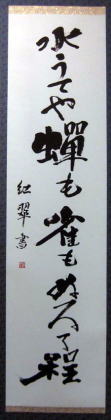 水うてや蟬も雀もぬるる程
紅翠書